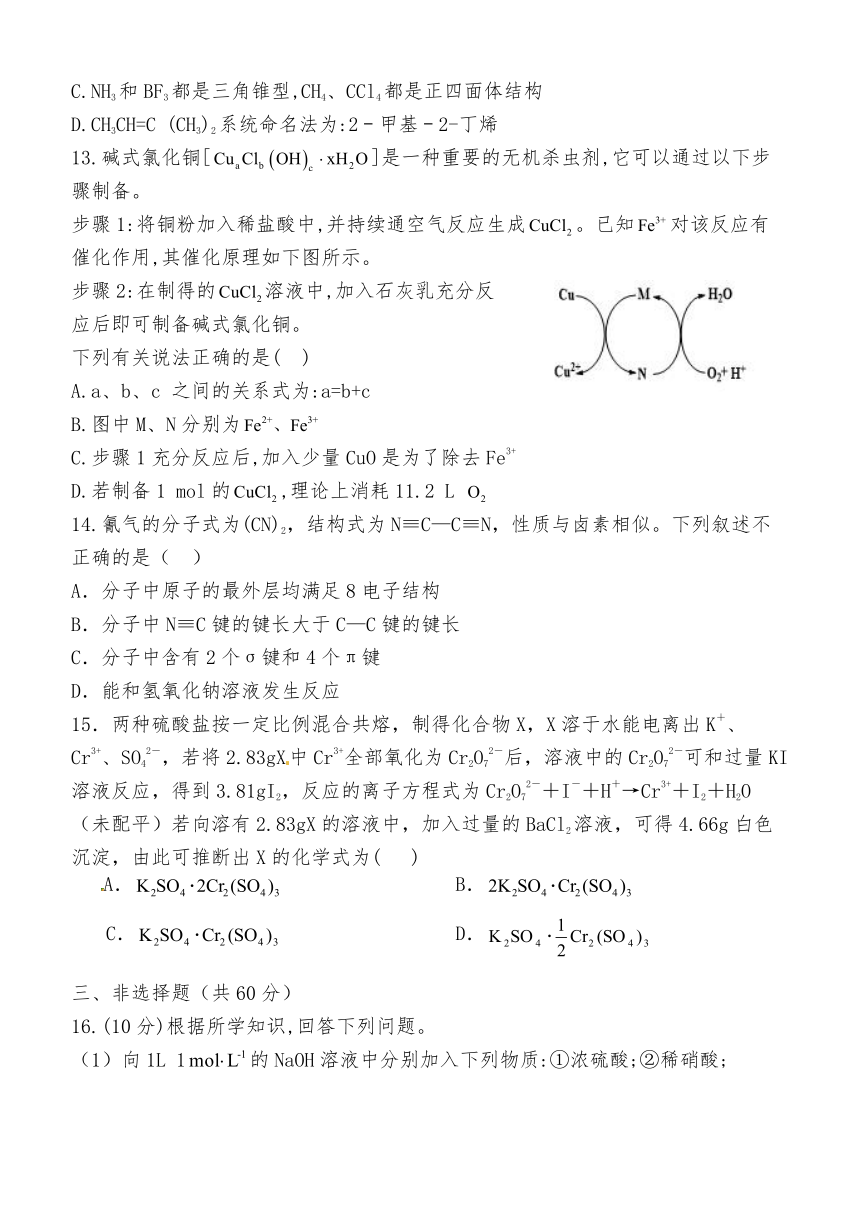 C.NH₃和BF₃都是三角锥型,CH₄、CCl₄都是正四面体结构
D.CH₃CH=C (CH₃)₂系统命名法为:2–甲基–2-丁烯
13.碱式氯化铜[CuₐCl_b(OH)_c·xH₂O]是一种重要的无机杀虫剂,它可以通过以下步
骤制备。
步骤1:将铜粉加入稀盐酸中,并持续通空气反应生成CuCl₂。已知Fe³⁺对该反应有
催化作用,其催化原理如下图所示。
步骤2:在制得的CuCl₂溶液中,加入石灰乳充分反
应后即可制备碱式氯化铜。
Cu M H₂O
Cu²⁺ N O₂+H⁺
下列有关说法正确的是( )
A.a、b、c 之间的关系式为:a=b+c
B.图中M、N分别为Fe²⁺、Fe³⁺
C.步骤1充分反应后,加入少量CuO是为了除去Fe³⁺
D.若制备1 mol的CuCl₂,理论上消耗11.2 L O₂
14.氰气的分子式为(CN)₂，结构式为N≡C—C≡N，性质与卤素相似。下列叙述不
正确的是（ ）
A．分子中原子的最外层均满足8电子结构
B．分子中N≡C键的键长大于C—C键的键长
C．分子中含有2个σ键和4个π键
D．能和氢氧化钠溶液发生反应
15．两种硫酸盐按一定比例混合共熔，制得化合物X，X溶于水能电离出K⁺、
Cr³⁺、SO₄²⁻，若将2.83gX中Cr³⁺全部氧化为Cr₂O₇²⁻后，溶液中的Cr₂O₇²⁻可和过量KI
溶液反应，得到3.81gI₂，反应的离子方程式为Cr₂O₇²⁻＋I⁻＋H⁺→Cr³⁺＋I₂＋H₂O
（未配平）若向溶有2.83gX的溶液中，加入过量的BaCl₂溶液，可得4.66g白色
沉淀，由此可推断出X的化学式为( )
A．K₂SO₄·2Cr₂(SO₄)₃ B．2K₂SO₄·Cr₂(SO₄)₃
C．K₂SO₄·Cr₂(SO₄)₃ D．K₂SO₄·1/2Cr₂(SO₄)₃
三、非选择题（共60分）
16.(10分)根据所学知识,回答下列问题。
（1）向1L 1mol·L⁻¹的NaOH溶液中分别加入下列物质:①浓硫酸;②稀硝酸;